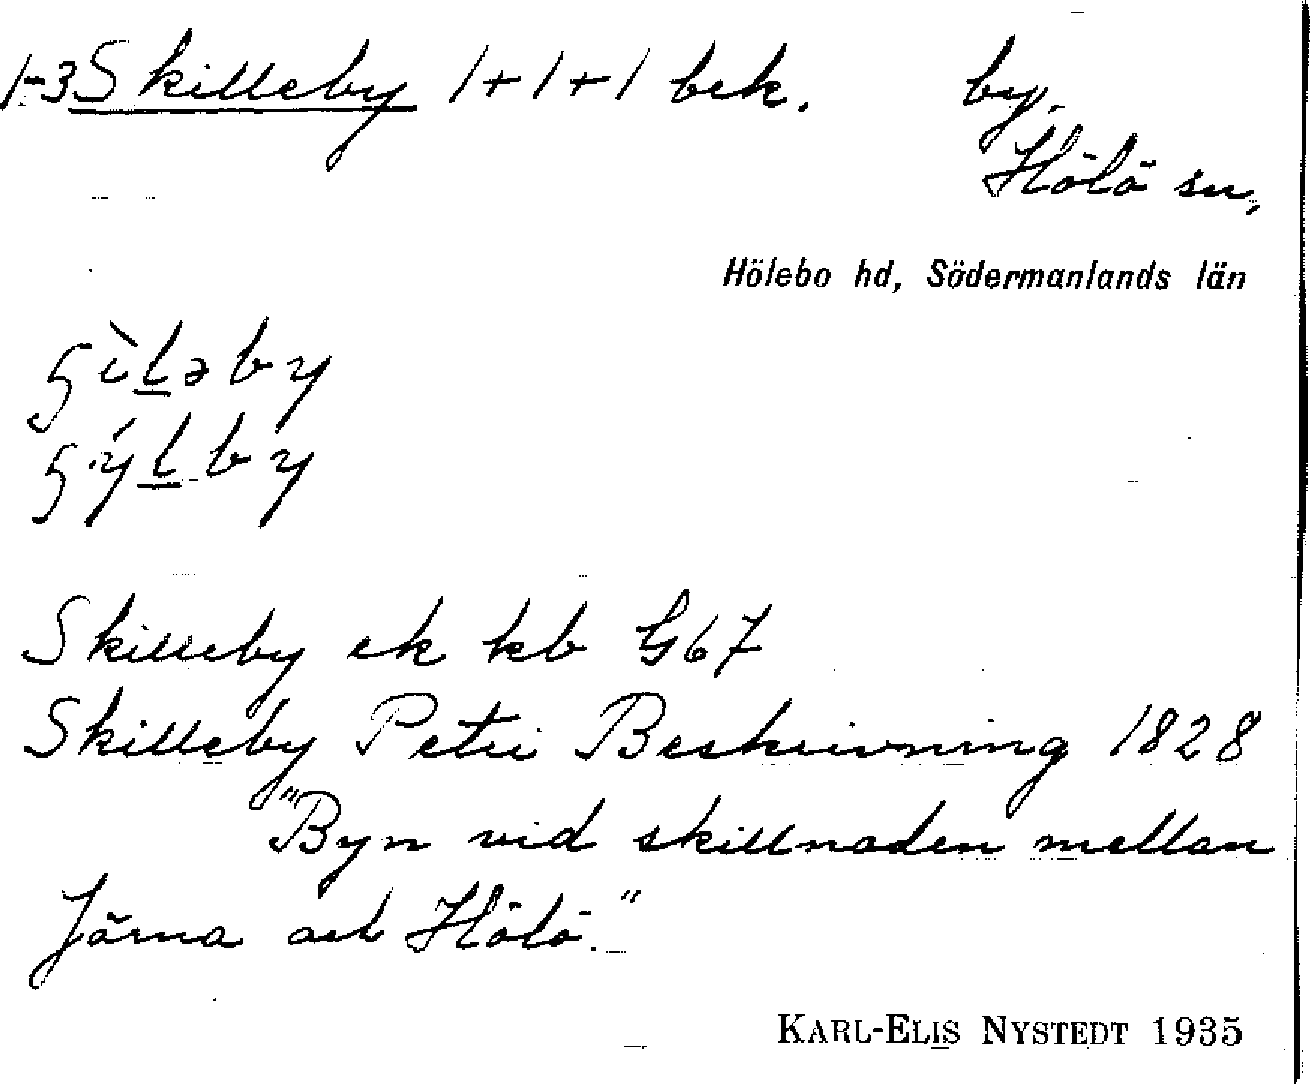 1-3 Skilleby 1+1+1 bek. by.
Hölö sn,
Hölebo hd, Södermanlands län
ʂìl̲əby
ʂýl̲by
Skilleby ek kb G67
Skilleby Petri Beskrivning 1828
"Byn vid skillnaden mellan
Järna och Hölö."
KARL-ELIS NYSTEDT 1935